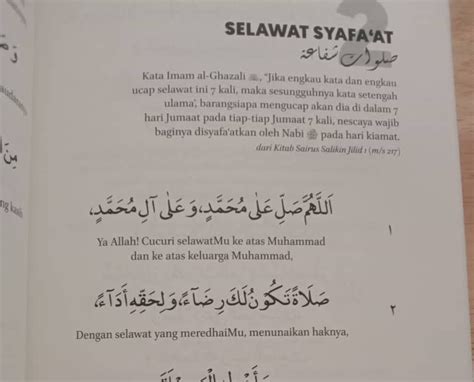 SELAWAT SYAFA'AT
صلوات شفاعة
Kata Imam al-Ghazali, "Jika engkau kata dan engkau
ucap selawat ini 7 kali, maka sesungguhnya kata setengah
ulama', barangsiapa mengucap akan dia di dalam 7
hari Jumaat pada tiap-tiap Jumaat 7 kali, nescaya wajib
baginya disyafa'atkan oleh Nabi ﷺ pada hari kiamat.
dari Kitab Sairus Salikin Jilid 1 (m/s 217)
اَللّٰهُمَّ صَلِّ عَلَى مُحَمَّدٍ، وَعَلَى آلِ مُحَمَّدٍ، ١
Ya Allah! Cucuri selawatMu ke atas Muhammad
dan ke atas keluarga Muhammad,
صَلَاةً تَكُوْنُ لَكَ رِضَاءً، وَلِحَقِّهِ أَدَاءً، ٢
Dengan selawat yang meredhaiMu, menunaikan haknya,